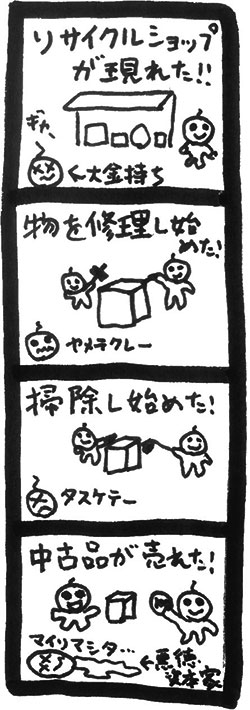 リサイクルショップ
が現れた!!
ギャ
←大金持ち
物を修理し始
めた!
ヤメテクレー
掃除し始めた!
タスケテー
中古品が売れた!
マイリマシタ…
←悪徳
資本家